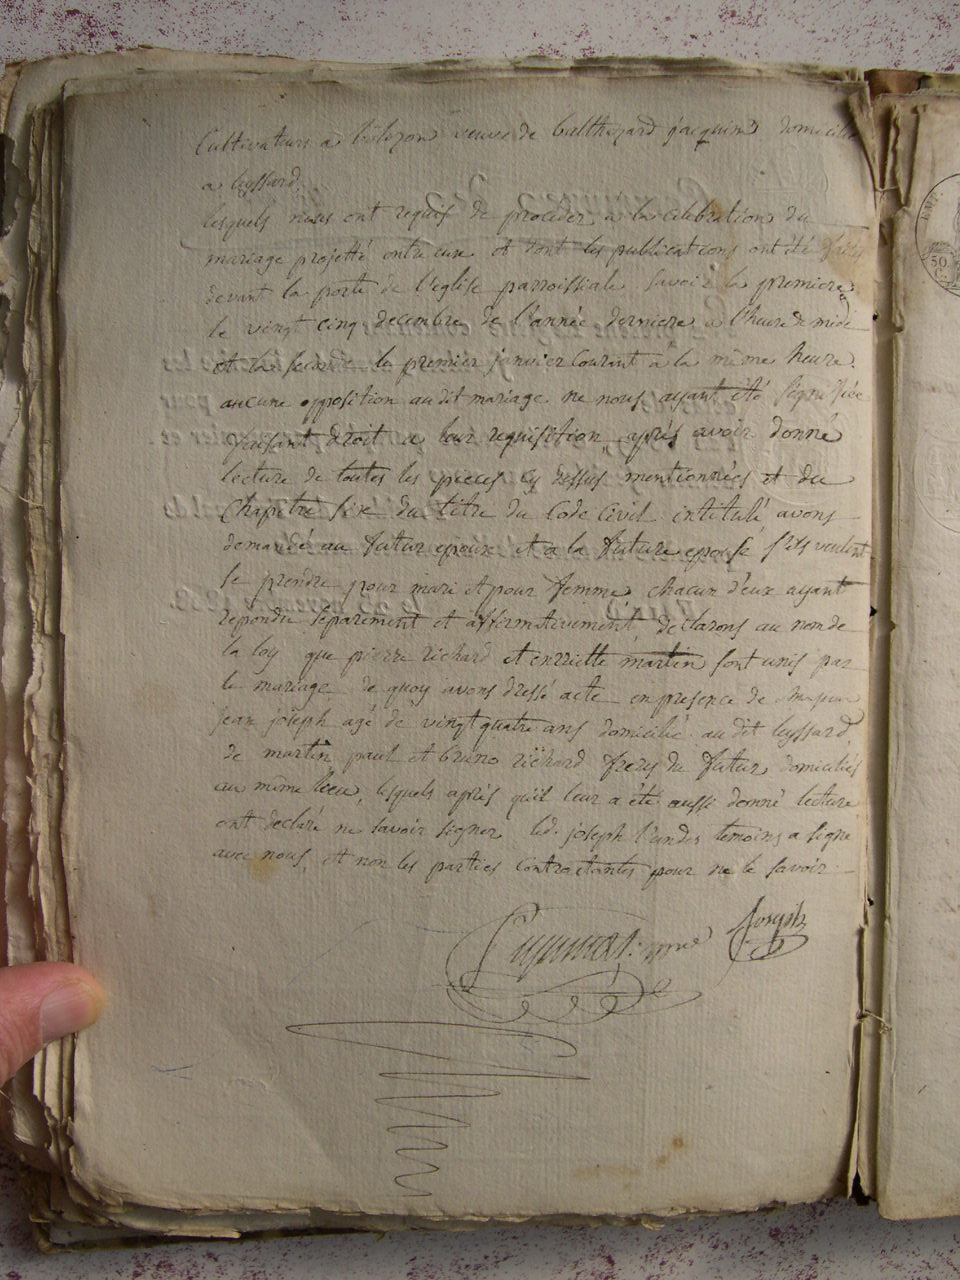 Cultivateurs a Bolozon veuve de balthazard jacquin domicilié
a leyssard.
lesquels nous ont requis de proceder a la celebration du
mariage projetté entre eux et dont les publications ont été faites
devant la porte de l'eglise parroissiale savoir la premiere
le vingt cinq decembre de l'année derniere a l'heure de midi
et la seconde le premier janvier courant a la même heure.
aucune opposition audit mariage ne nous ayant été signifiée
faisant droit a leur requisition, après avoir donné
lecture de toutes les pieces cy dessus mentionnées et du
Chapitre six du titre du Code Civil intitulé, avons
demandé au futur epoux et a la future epouse s'ils veulent
se prendre pour mari et pour femme chacun d'eux ayant
repondu séparement et affirmativement, declarons au nom de
la loy que pierre richard et enriette martin sont unis par
le mariage de quoy avons dressé acte en presence de
jean joseph agé de vingt quatre ans domicilié au dit leyssard,
de martin paul et bruno richard freres du futur domiciliés
au même lieu, lesquels après qu'il leur a été aussi donné lecture
ont declaré ne savoir signer led. joseph l'un des temoins a signé
avec nous, et non les parties contractantes pour ne le savoir
joseph